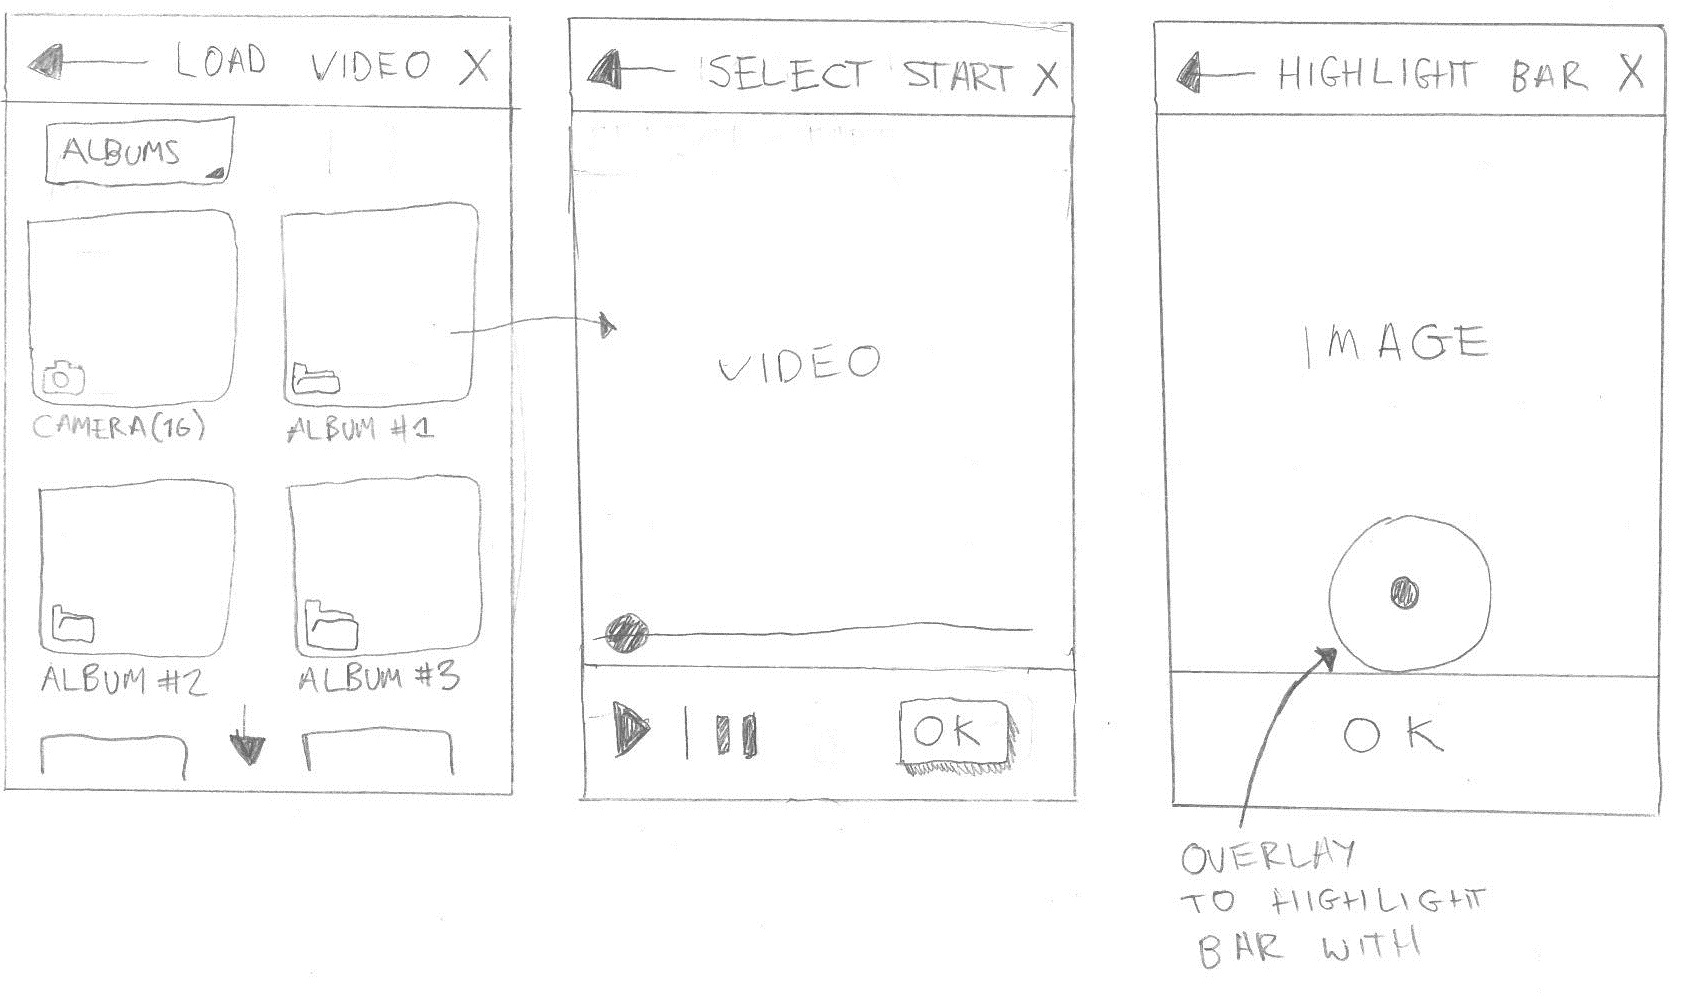 LOAD VIDEO X
ALBUMS
CAMERA(16)
ALBUM #1
ALBUM #2
ALBUM #3
SELECT START X
VIDEO
OK
HIGHLIGHT BAR X
IMAGE
OK
OVERLAY
TO HIGHLIGHT
BAR WITH